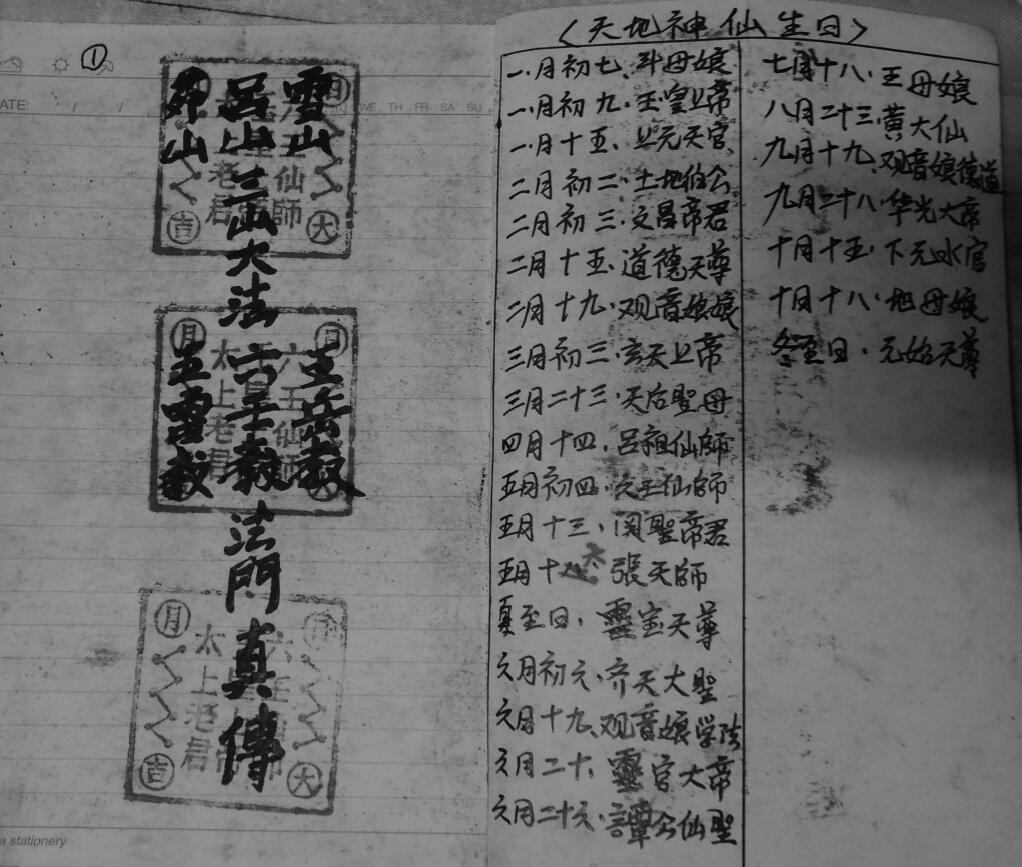 ①
雪山
呂山
茅山
三山大法
王岳教
六壬教
五雷教
法門真傳
DATE: / /
WE TH FR SA SU
日
月
六壬仙師
太上老君
吉
大
a stationery
〈天地神仙生日〉
一月初七、斗母娘
一月初九·玉皇上帝
一月十五、上元天官
二月初二·土地伯公
二月初三·文昌帝君
二月十五·道德天尊
二月十九·观音娘娘
三月初三·玄天上帝
三月二十三·天后聖母
四月十四·呂祖仙師
五月初四·六壬仙師
五月十三·関聖帝君
五月十八·張天師
夏至日·靈宝天尊
六月初六·齐天大聖
六月十九、观音娘学法
六月二十、靈官大帝
六月二十六·譚公仙聖
七月十八·王母娘
八月二十三·黄大仙
九月十九、观音娘德道
九月二十八·华光大帝
十月十五·下元水官
十月十八·地母娘
冬至日·元始天尊